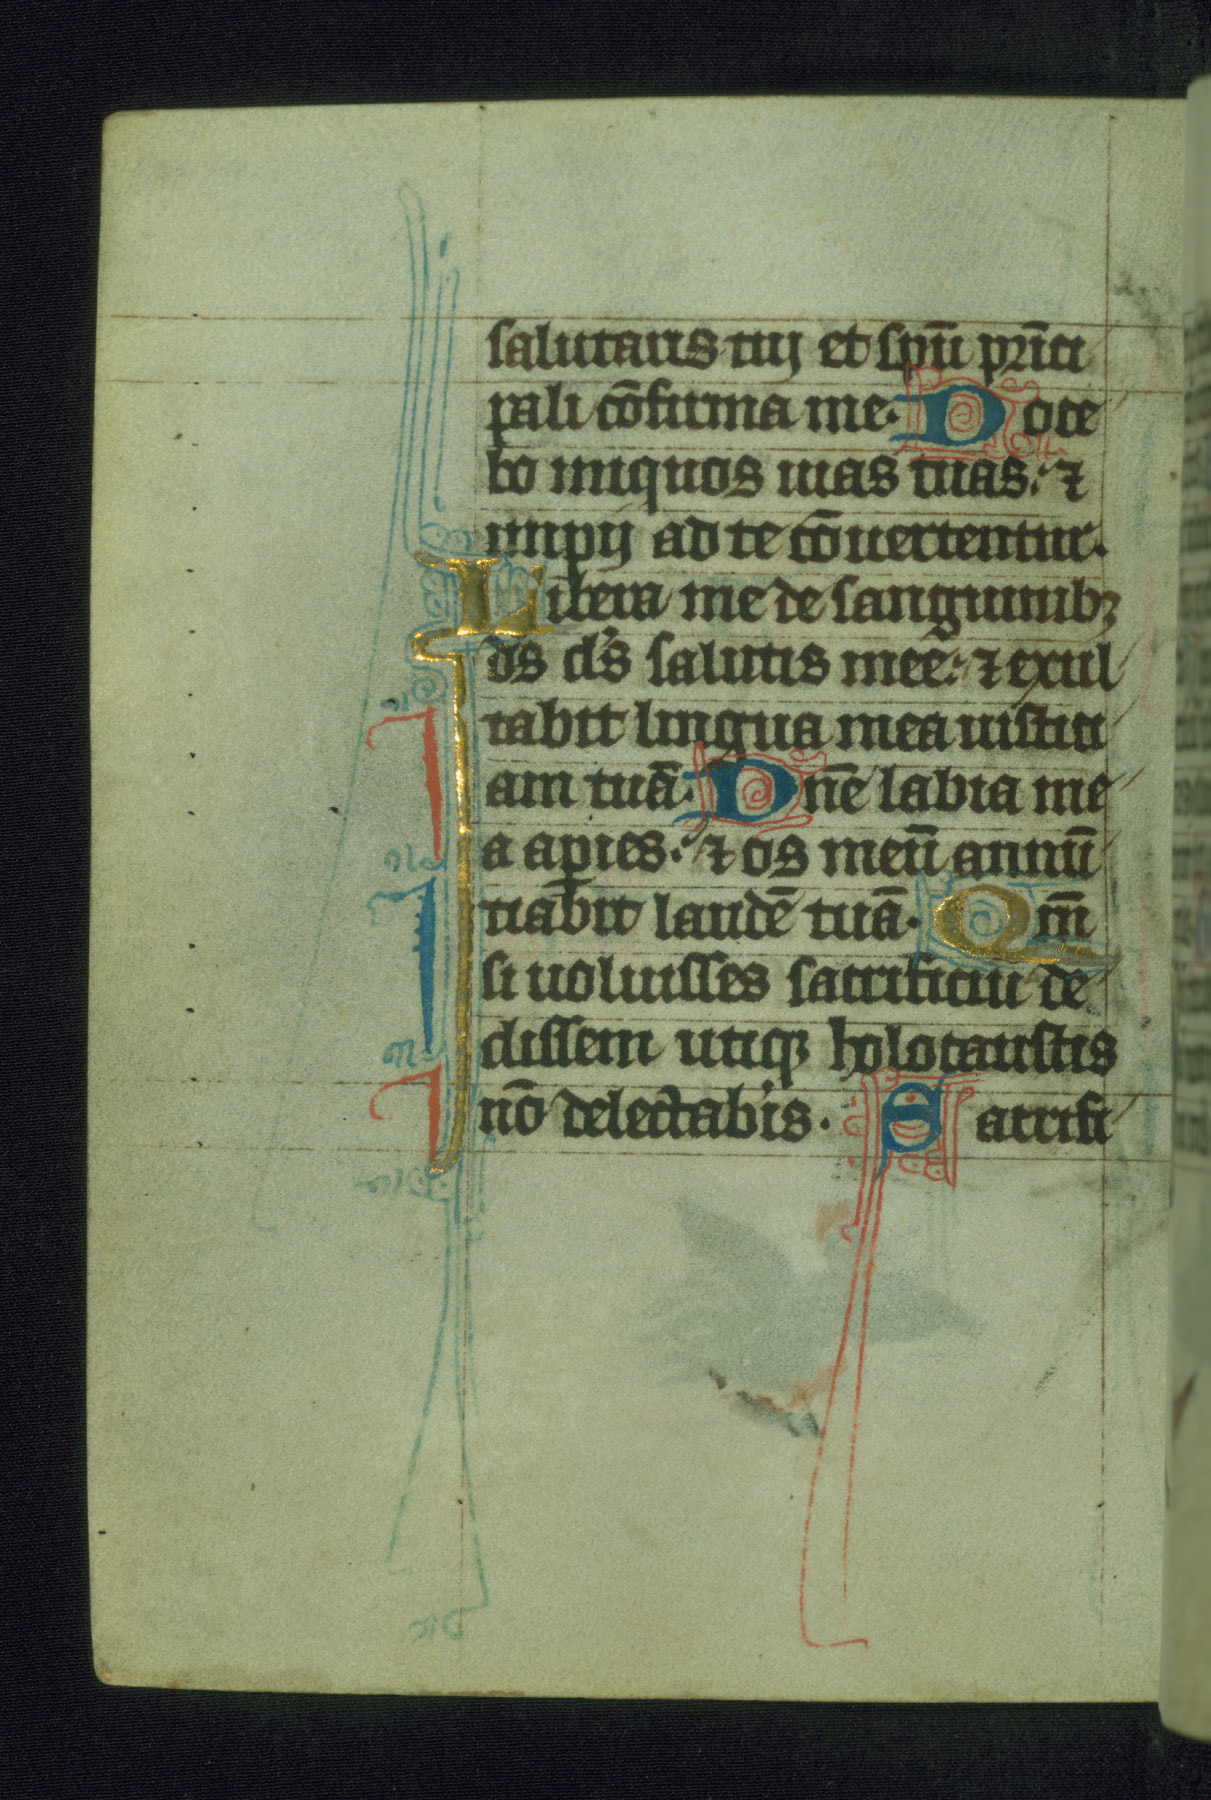 salutaris tuij et spū prīci
pali cōfirma me. Doce
bo iniquos uias tuas: ⁊
impij ad te cōuertentur.
Libera me de sanguinibꝫ
ds ds salutis mee: ⁊ exul
tabit lingua mea iustici
am tuā. Dn̄e labia me
a apies: ⁊ os meū annū
tiabit laudē tuā. Qm̄
si uoluisses sacrificiu de
dissem utiqꝫ holocaustis
nō delectab'is. Sacrifi